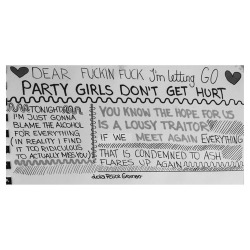 DEAR FUCKIN FUCK I'm letting GO
PARTY GIRLS DON'T GET HURT
TONIGHT
I'M JUST GONNA
BLAME THE ALCOHOL
FOR EVERYTHING
(IN REALITY I FIND
IT TOO RIDICULOUS
TO ACTUALLY MISS YOU)
YOU KNOW THE HOPE FOR US
IS A LOUSY TRAITOR
IF WE MEET AGAIN EVERYTHING
THAT IS CONDEMNED TO ASH
FLARES UP AGAIN